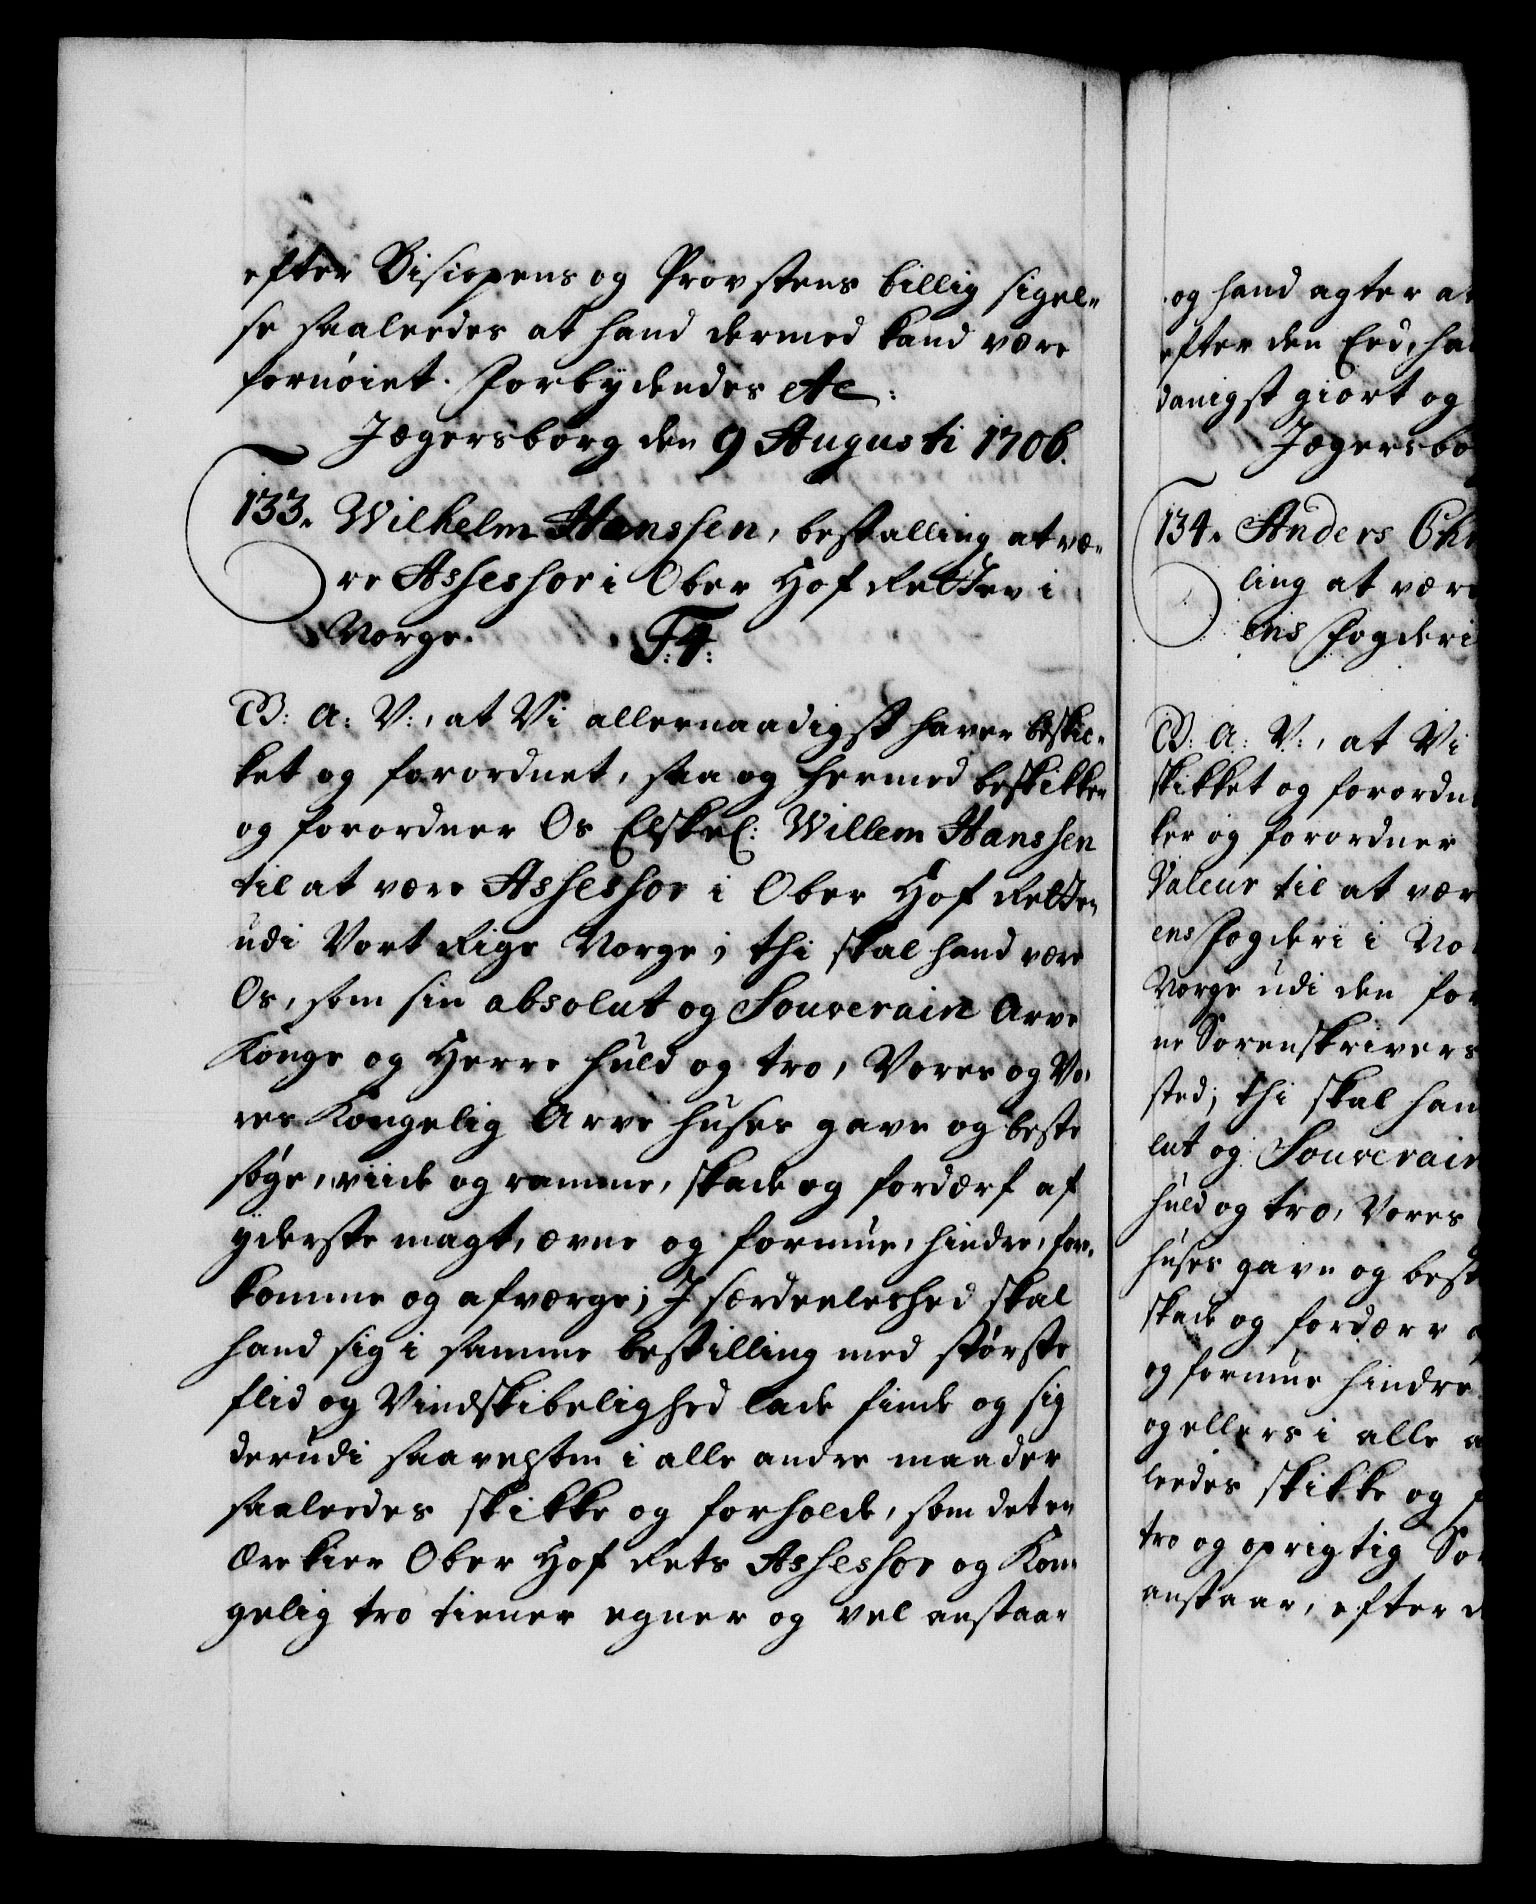 efter Bisiopens og Provstens billig sigel-
se saaleedes at hand dermed kand være
fornøiet. Forbydendes etc:
Jægersborg den 9 Augusti 1706.
133. Wilhelm Hanssen, bestalling at væ-
re Assessor i Ober Hof Retten i
Norge. F:4:
C3: A: V:, at Vi allernaadigst haver beskic-
ket og forordnet, saa og hermed beskikker
og forordner Os Elskel: Willem Hanssen
til at være Assessor i Ober Hof Retten
udi Vort Rige Norge; thi skal hand være
Os, som sin absolut og Souverain Arve
Konge og Herre huld og tro, Vores og Vo-
res Kongelig Arve huses gavn og beste
søge, viide og ramme, skade og fordærf af
yderste magt, ævne og formue, hindre, for-
komme og afværge; J særdeeleshed skal
hand sig i samme bestilling med største
flid og Vindskibelighed lade finde og sig
derudi saavelsom i alle andre maader
saaleedes skikke og forholde, som det en
Ærekier Ober Hof Rets Assessor og Kon-
gelig tro tiener egner og vel anstaar
og hand agter at
efter den Eed, ha
danigst giort og
Jægersbo
134. Anders Chr
ling at være
ens Fogderi
C3: A: V:, at Vi
skikket og forordn
ker og forordner
Valeur til at vær
ens Fogderi i No
Norge udi den for
ne Sorenskrivers
sted; thi skal han
lut og Souverain
huld og tro, Vores
huses gavn og best
skade og fordærv a
og formue hindre
og ellers i alle a
leedes skikke og f
tro og oprigtig Sor
anstaar, efter d